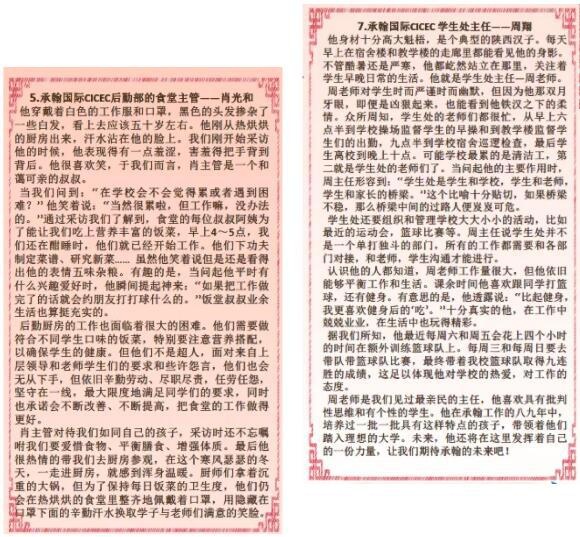 5.承翰国际CICEC后勤部的食堂主管——肖光和
他穿戴着白色的工作服和口罩，黑色的头发掺杂了
一些白发，看上去应该五十岁左右。他刚从热烘烘
的厨房出来，汗水沾在他的脸上。我们刚开始采访
他的时候，他表现得有一点羞涩，害羞得把手背到
背后。他很喜欢笑，于我们而言，肖主管是一个和
蔼可亲的叔叔。
当我们问到：“在学校会不会觉得累或者遇到困
难？”他笑着说：“当然很累啦，但工作嘛，没办法
的。”通过采访我们了解到，食堂的每位叔叔阿姨为
了能让我们吃上营养丰富的饭菜，早上4~5点，我
们还在酣睡时，他们就已经开始工作。他们下功夫
制定菜谱、研究新菜…… 虽然他笑着说但是还是看得
出他的表情五味杂粮。有趣的是，当问起他平时有
什么兴趣爱好时，他瞬间提起神来：“如果把工作做
完了的话就会约朋友打打球什么的。”饭堂叔叔业余
生活也算挺充实的。
后勤厨房的工作也面临着很大的困难。他们需要做
符合不同学生口味的饭菜，特别要注意营养搭配，
以确保学生的健康。但他们不是超人，面对来自上
层领导和老师学生们的要求和些许怨言，他们也会
无从下手，但依旧辛勤劳动、尽职尽责，任劳任怨，
坚守在一线，最大限度地满足同学们的要求，同时
也承诺会不断改善、不断提高，把食堂的工作做得
更好。
肖主管对待我们如同自己的孩子，采访时还不忘嘱
咐我们要爱惜食物、平衡膳食、增强体质。最后他
很热情的带我们去厨房参观，在这个寒风瑟瑟的冬
天，一走进厨房，就感到浑身温暖。厨师们拿着沉
重的大锅，但为了保持每日饭菜的卫生度，他们仍
会在热烘烘的食堂里整齐地佩戴着口罩，用隐藏在
口罩下面的辛勤汗水换取学子与老师们满意的笑脸。
7.承翰国际CICEC 学生处主任——周翔
他身材十分高大魁梧，是个典型的陕西汉子。每天
早上在宿舍楼和教学楼的走廊里都能看见他的身影。
不管酷暑还是严寒，他都屹然站立在那里，关注着
学生早晚日常的生活。他就是学生处主任—周老师。
周老师对学生时而严谨时而幽默，但因为他那双月
牙眼，即便是凶狠起来，也能看到他铁汉之下的柔
情。众所周知，学生处的老师们都很忙，从早上六
点半到学校操场监督学生的早操和到教学楼监督学
生们的出勤，九点半到学校宿舍巡逻检查，最后学
生离校到晚上十点。可能学校最累的是清洁工，第
二就是学生处的老师们了。当问起他的主要作用时，
周主任形容到：“学生处是学生和学校，学生和老师，
学生和家长的桥梁。”这个比喻十分贴切，如果桥梁
不稳，那么桥梁中间的过路人便岌岌可危。
学生处还要组织和管理学校大大小小的活动，比如
最近的运动会，篮球比赛等。周主任说学生处并不
是一个单打独斗的部门，所有的工作都需要和各部
门对接，和老师，学生沟通才能进行。
认识他的人都知道，周老师工作量很大，但他依旧
能够平衡工作和生活。课余时间他喜欢跟同学打篮
球，还有健身。有意思的是，他透露说：“比起健身，
我更喜欢健身后的‘吃’。”十分真实的他，在工作中
兢兢业业，在生活中也玩得精彩。
据我们所知，他最近每周六和周五会花上四个小时
的时间在额外训练篮球队上。每周三和每周日要去
带队带篮球队比赛，最终带着我校篮球队取得九连
胜的成绩，这足以体现他对学校的热爱，对工作的
态度。
周老师是我们见过最亲民的主任，他喜欢具有批判
性思维和有个性的学生。他在承翰工作的八九年中，
培养过一批一批具有这样特点的孩子，带领着他们
踏入理想的大学。未来，他还将在这里发挥着自己
的一份力量，让我们期待承翰的未来吧！